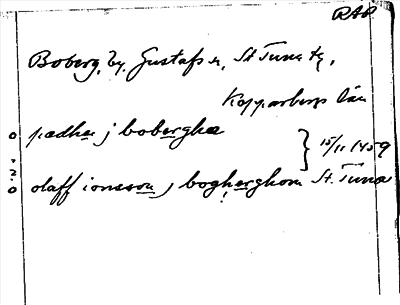 RAP
Boberg, by, Gustafs sn, St Tuna tg,
Kopparbergs län
o pædhær j boberghæ
15/11 1459
o olaff ionsson j bogherghom St. Tuna